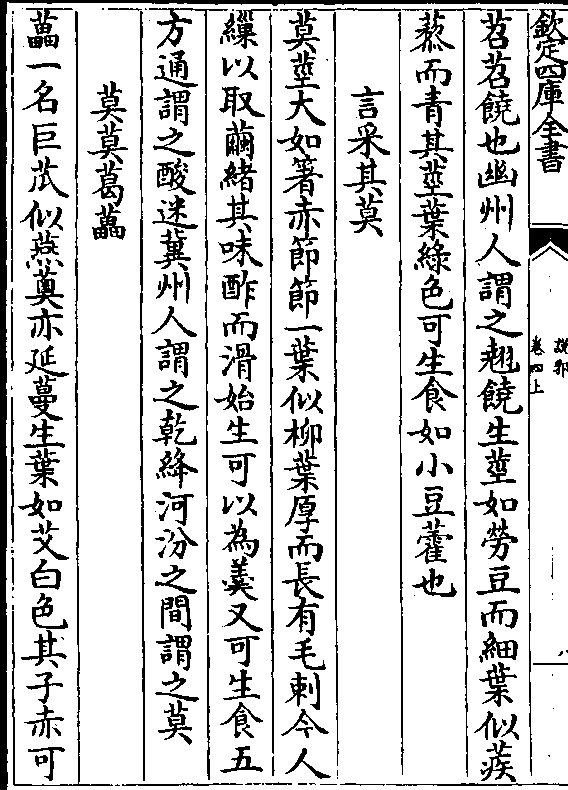 欽定四庫全書
說郛
卷四上
八
苕苕饒也幽州人謂之翹饒生莖如勞豆而細葉似蒺
蔾而青其莖葉綠色可生食如小豆藿也
言采其莫
莫莖大如箸赤節節一葉似柳葉厚而長有毛刺今人
繅以取繭緒其味酢而滑始生可以為羮又可生食五
方通謂之酸迷冀州人謂之乾絳河汾之間謂之莫
莫莫葛藟
藟一名巨苽似燕薁亦延蔓生葉如艾白色其子赤可